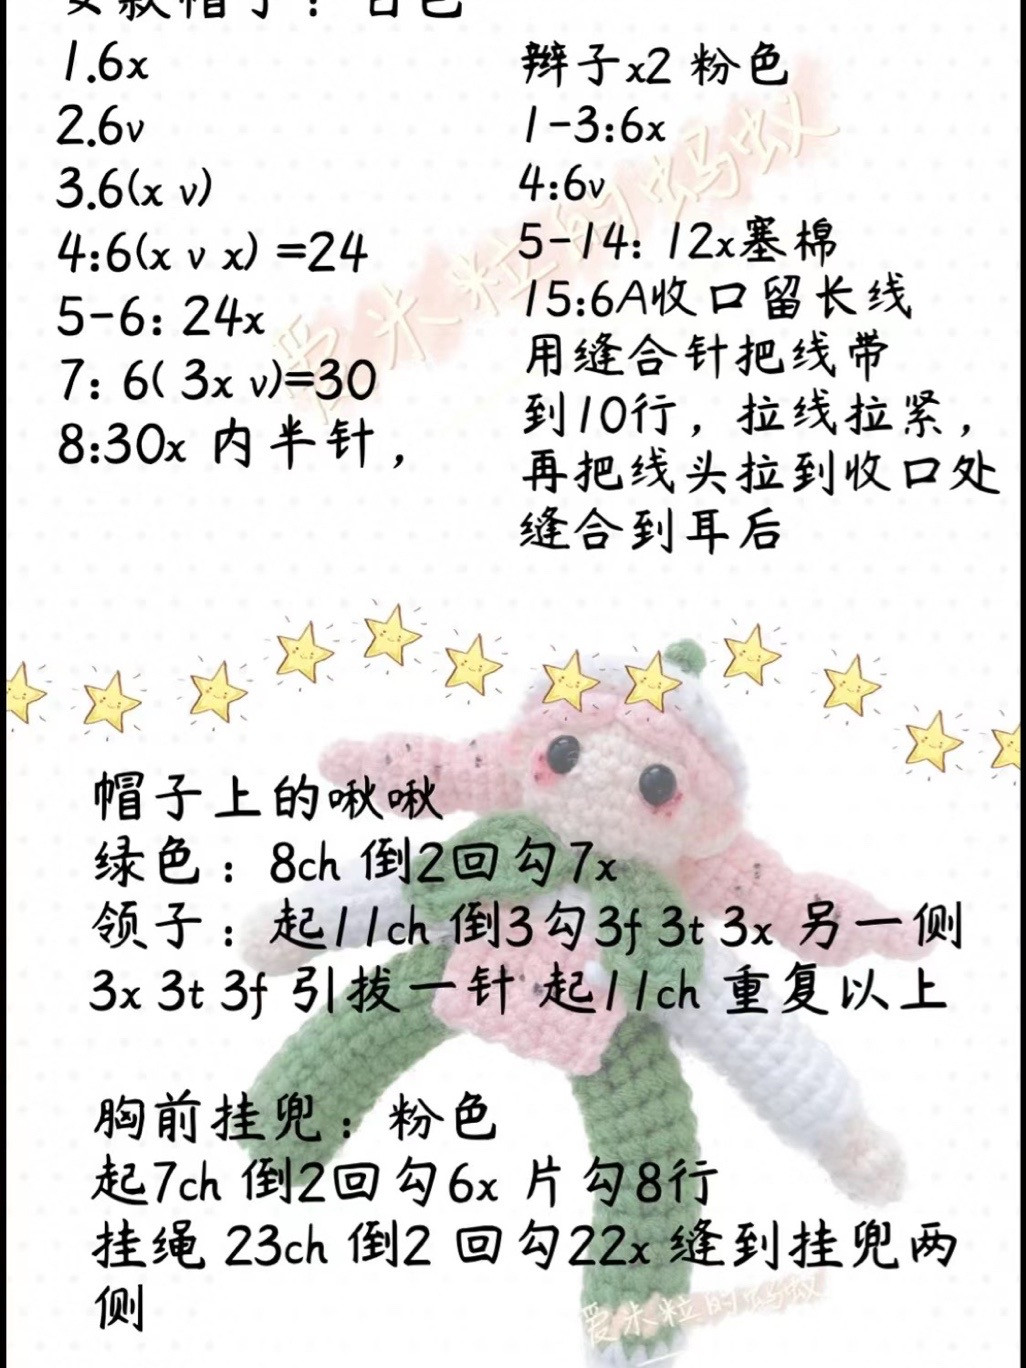 女款帽子：白色
1.6x
2.6v
3.6(x v)
4:6(x v x) =24
5-6: 24x
7: 6( 3x v)=30
8:30x 内半针，
辫子x2 粉色
1-3:6x
4:6v
5-14: 12x塞棉
15:6A收口留长线
用缝合针把线带
到10行，拉线拉紧，
再把线头拉到收口处
缝合到耳后
爱米粒的蚂蚁
帽子上的啾啾
绿色：8ch 倒2回勾7x
领子：起11ch 倒3勾3f 3t 3x 另一侧
3x 3t 3f 引拔一针 起11ch 重复以上
胸前挂兜：粉色
起7ch 倒2回勾6x 片勾8行
挂绳 23ch 倒2 回勾22x 缝到挂兜两
侧
爱米粒的蚂蚁